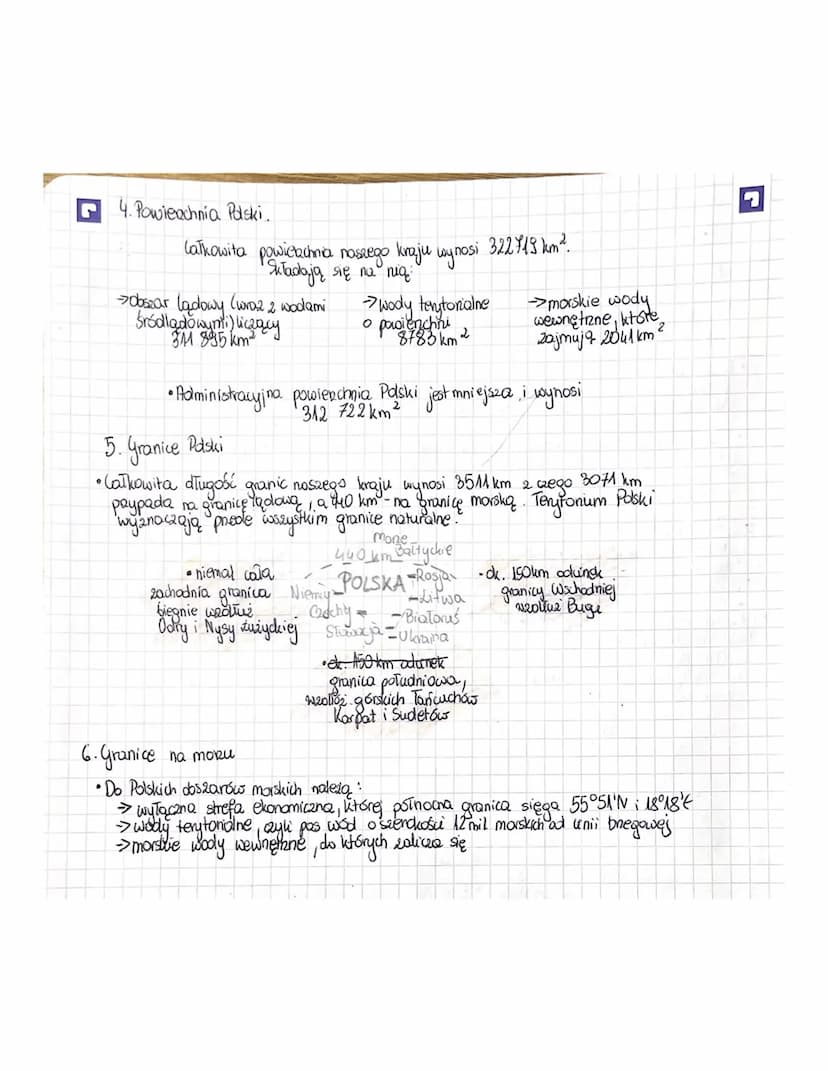 4. Powierzchnia Polski.
Całkowita powierzchnia naszego kraju wynosi 322719 km².
Składają się na nią:
→obszar lądowy (wraz z wodami
śródlądowymi) liczący
311 895 km²
→wody terytorialne
o powierzchni
8783 km²
→morskie wody
wewnętrzne, które
zajmują 2041 km²
•Administracyjna powierzchnia Polski jest mniejsza i wynosi
312 722 km²
5. Granice Polski
•Całkowita długość granic naszego kraju wynosi 3511 km z czego 3071 km
przypada na granicę lądową, a 440 km - na granicę morską. Terytorium Polski
wyznaczają przede wszystkim granice naturalne.
Morze
440 km Bałtyckie
•niemal cała
zachodnia granica
biegnie wzdłuż
Odry i Nysy Łużyckiej
Niemcy
Czechy
Słowacja
POLSKA
Rosja
Litwa
Białoruś
Ukraina
•ok. 150km odcinek
granicy Wschodniej
wzdłuż Bugu
•ok. 150km odcinek
granica południowa,
wzdłóż górskich łańcuchów
Karpat i Sudetów
6. Granice na morzu
•Do Polskich obszarów morskich należą:
→ wyłączna strefa ekonomiczna, której północna granica sięga 55°51'N i 18°18'E
→wody terytorialne, czyli pas wód o szerokości 12 mil morskich od linii brzegowej
→morskie wody wewnętrzne, do których zalicza się